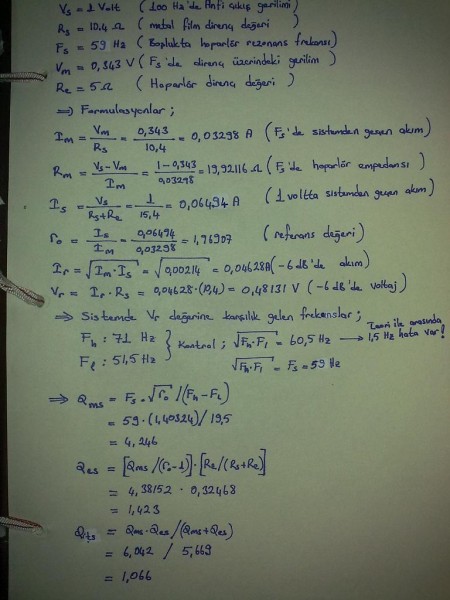 Vs = 1 Volt (100 Hz'de Anfi çıkış gerilimi)
Rs = 10,4 Ω (metal film direnç değeri)
Fs = 59 Hz (Boşlukta hoparlör rezonans frekansı)
Vm = 0,343 V (Fs'de direnç üzerindeki gerilim)
Re = 5Ω (Hoparlör direnç değeri)
⇒ Formulasyonlar ;
Im = Vm/Rs = 0,343/10,4 = 0,03298 A (Fs'de sistemden geçen akım)
Rm = Vs-Vm/Im = 1-0,343/0,03298 = 19,92116 Ω (Fs'de hoparlör empedansı)
Is = Vs/Rs+Re = 1/15,4 = 0,06494 A (1 voltta sistemden geçen akım)
ro = Is/Im = 0,06494/0,03298 = 1,96907 (referans değeri)
Ir = √Im.Is = √0,00214 = 0,04628A (-6 dB'de akım)
Vr = Ir.Rs = 0,04628.(10,4) = 0,48131 V (-6 dB'de voltaj)
⇒ Sistemde Vr değerine karşılık gelen frekanslar;
Fh : 71 Hz } Kontrol ; √Fh.Fl = 60,5 Hz → Teori ile arasında 1,5 Hz hata var!
Fl : 51,5 Hz √Fh.Fl = Fs = 59 Hz
⇒ Qms = Fs.√ro /(Fh-FL)
= 59.(1,40324)/19,5
= 4,246
Qes = [Qms/(ro-1)].[Re/(Rs+Re)]
= 4,38152 . 0,32468
= 1,423
Qts = Qms.Qes/(Qms+Qes)
= 6,042 / 5,669
= 1,066